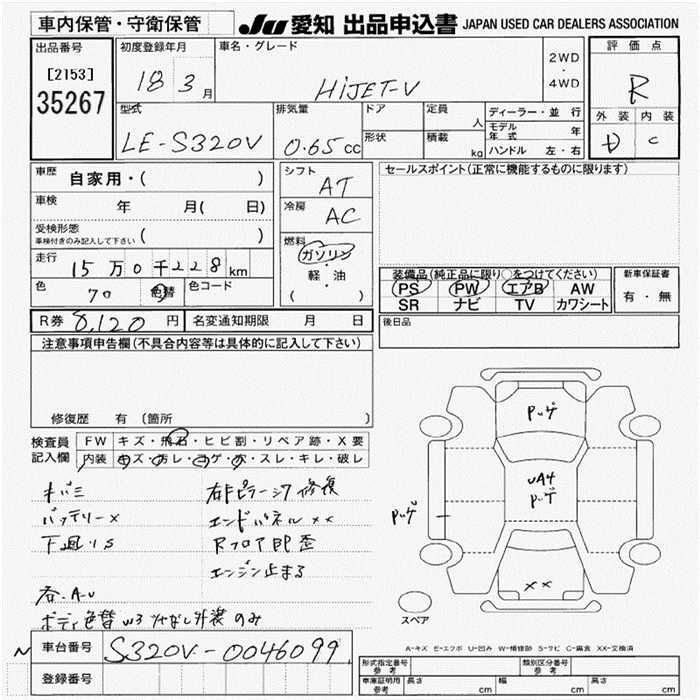 車内保管・守衛保管
JU 愛知 出品申込書 JAPAN USED CAR DEALERS ASSOCIATION
出品番号
[2153]
35267
初度登録年月
18 3 月
車名・グレード
HiJET-V
2WD
・
4WD
評価点
R
外装 内装
D C
型式
LE-S320V
排気量
0.65 cc
ドア
定員
人
形状
積載
kg
ディーラー・並行
モデル年式 年
ハンドル 左・右
車歴
自家用・( )
車検
年 月( 日)
受検形態
車検付きのみ記入して下さい ( )
走行
15万0千228km
色
70 色替
色コード
シフト
AT
冷房
AC
燃料
ガソリン
軽・油
( )
セールスポイント(正常に機能するものに限ります)
装備品(純正品に限り○をつけてください)
PS PW エアB AW
SR ナビ TV カワシート
新車保証書
有・無
R券 8,120 円
名変通知期限 月 日
後日品
注意事項申告欄(不具合内容等は具体的に記入して下さい)
修復歴 有 (箇所 )
検査員記入欄
FW キズ・飛石・ヒビ割・リペア跡・X要
内装 キズ・ヨレ・コゲ・穴・スレ・キレ・破レ
キバミ
バッテリーX
下廻りS
右Fピラーシワ修復
エンドパネルXX
Rフロア
エンジン止まる
各.A-U
ボディ色替 W3 外装のみ
Pッゲ
UA4
Pッゲ
Pッゲ
XX
スペア
A-キズ E-エクボ U-凹み W-補修跡 S-サビ C-腐食 XX-交換済
車台番号
S320V-0046099
登録番号
形式指定番号
参考
類別区分番号
参考
車庫証明用
参考
長さ cm
幅 cm
高さ cm